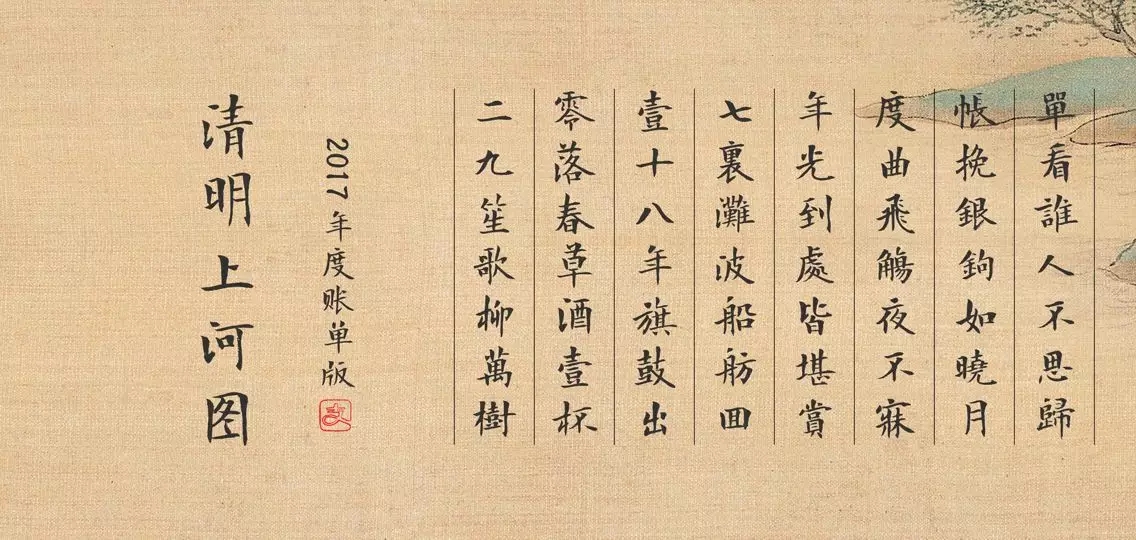 清明上河图
2017年度账单版
支
二九笙歌柳萬樹
零落春草酒壹杯
壹十八年旗鼓出
七裏灘波船舫囬
年光到處皆堪賞
度曲飛觴夜不寐
帳挽銀鉤如曉月
單看誰人不思歸